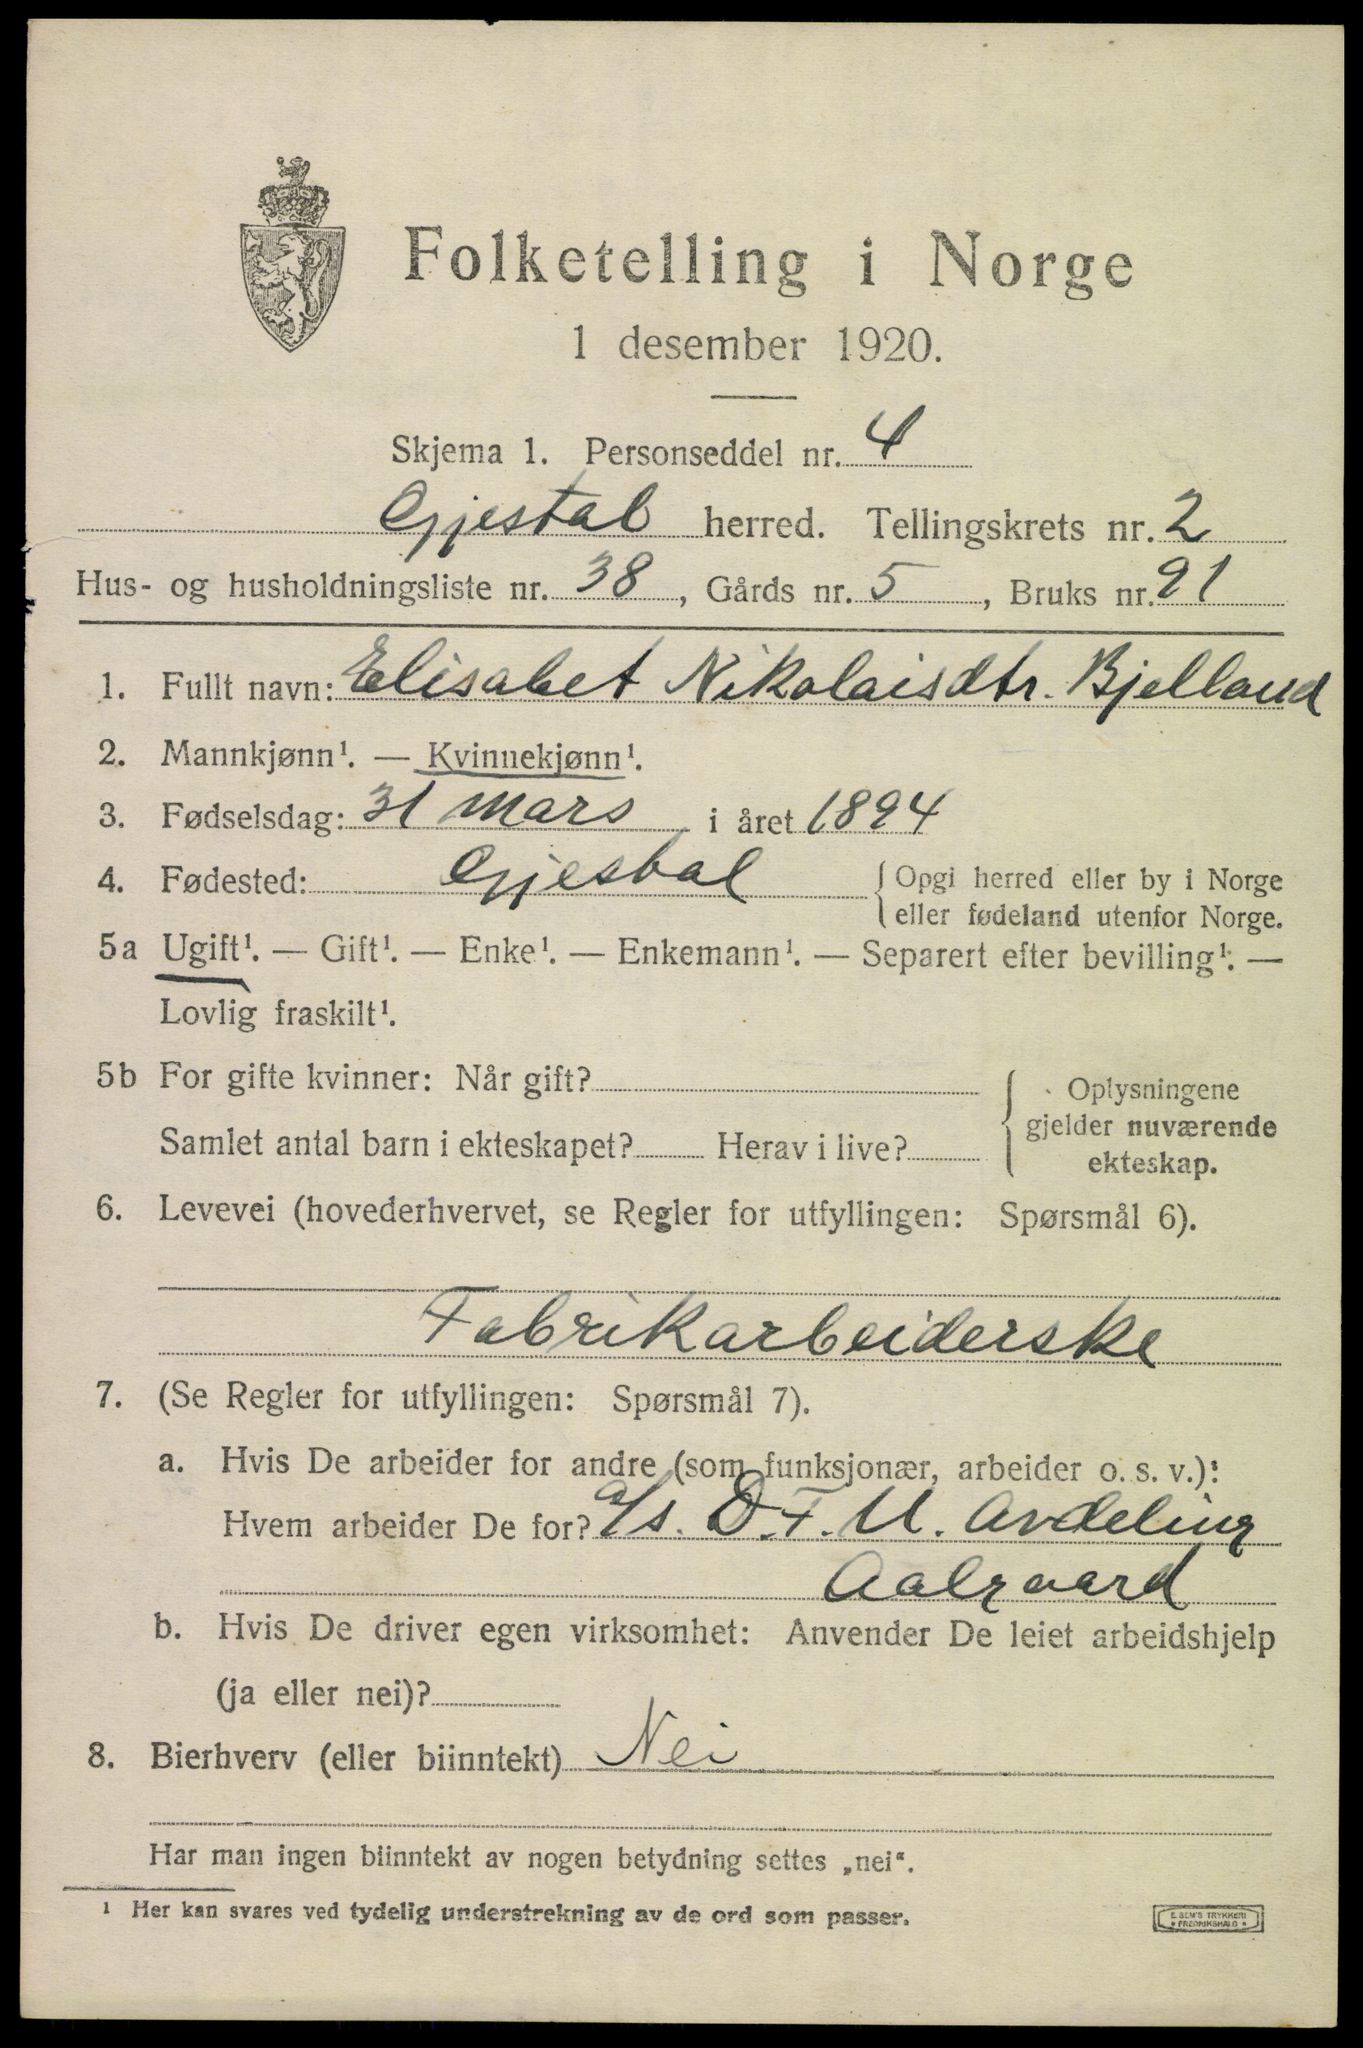 Folketelling i Norge
1 desember 1920.
Skjema 1. Personseddel nr. 4
Gjestal herred. Tellingskrets nr. 2
Hus- og husholdningsliste nr. 38, Gårds nr. 5, Bruks nr. 91
1. Fullt navn: Elisabet Nikolaisdtr. Bjelland
2. Mannkjønn¹. — Kvinnekjønn¹.
3. Fødselsdag: 31 mars i året 1894
4. Fødested: Gjestal {Opgi herred eller by i Norge
eller fødeland utenfor Norge.
5a Ugift¹. — Gift¹. — Enke¹. — Enkemann¹. — Separert efter bevilling¹. —
Lovlig fraskilt¹.
5b For gifte kvinner: Når gift? {Oplysningene
gjelder nuværende
Samlet antal barn i ekteskapet? Herav i live?
ekteskap.
6. Levevei (hovederhvervet, se Regler for utfyllingen: Spørsmål 6).
Fabrikarbeiderske
7. (Se Regler for utfyllingen: Spørsmål 7).
a. Hvis De arbeider for andre (som funksjonær, arbeider o. s. v.):
Hvem arbeider De for? a/s. D. F. U. Avdeling
Aalgaard
b. Hvis De driver egen virksomhet: Anvender De leiet arbeidshjelp
(ja eller nei)?
8. Bierhverv (eller biinntekt) Nei
Har man ingen biinntekt av nogen betydning settes „nei“.
¹ Her kan svares ved tydelig understrekning av de ord som passer.
E. SEM'S TRYKKERI
• FREDRIKSHALD •